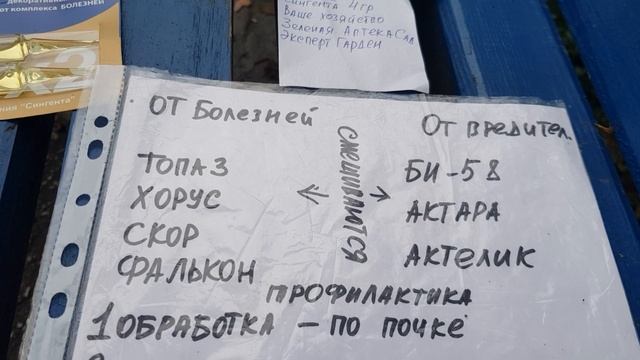 декоративны
от комплекса БОЛЕЗНЕЙ
х2
ния "Сингента"
Сингента 4гр
Ваше хозяйство
Зеленая Аптека Сад
Эксперт Гарден
ОТ Болезней
От вредител.
смешиваются
ТОПАЗ
БИ-58
ХОРУС
АКТАРА
СКОР
АКТЕЛИК
ФАЛЬКОН
ПРОФИЛАКТИКА
1 ОБРАБОТКА – ПО ПОЧКЕ